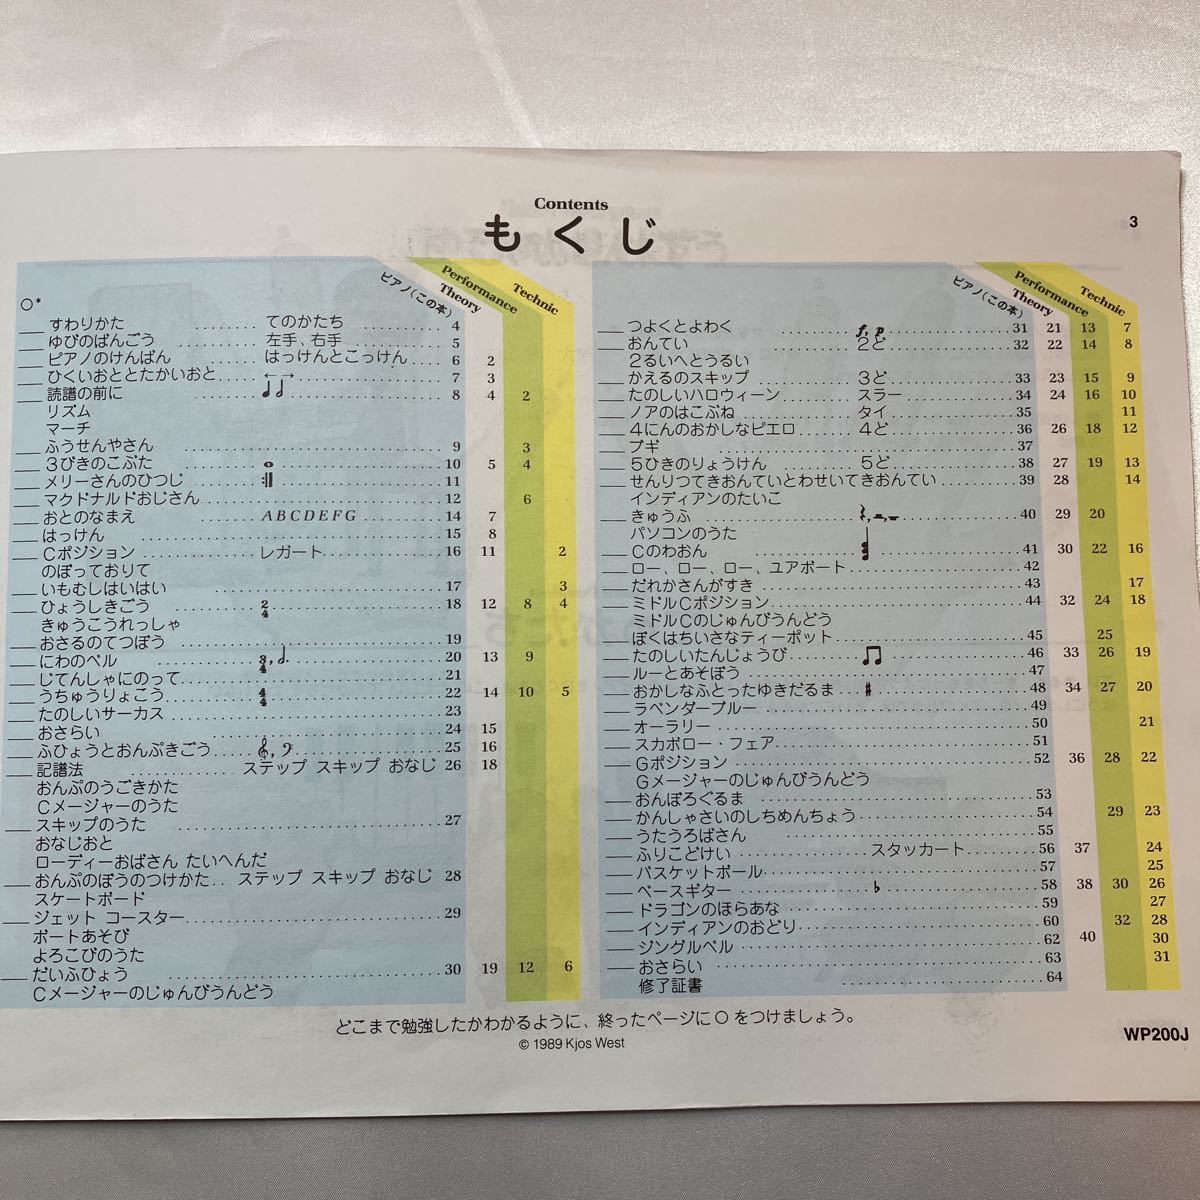 Contents
もくじ
3
ピアノ(この本) Theory Performance Technic
○*
すわりかた ........ てのかたち ........ 4
ゆびのばんごう ........ 左手、右手 ........ 5
ピアノのけんばん ........ はっけんとこっけん ........ 6 2
ひくいおととたかいおと ........ ←→ ........ 7 3
読譜の前に ........ ♩♩ ........ 8 4 2
リズム
マーチ
ふうせんやさん ........ 9 3
3びきのこぶた ........ 𝅝 ........ 10 5 4
メリーさんのひつじ ........ 𝄇 ........ 11
マクドナルドおじさん ........ 12 6
おとのなまえ ........ ABCDEFG ........ 14 7
はっけん ........ 15 8
Cポジション ........ レガート ........ 16 11 2
のぼっておりて
いもむしはいはい ........ 17 3
ひょうしきごう ........ 2/4 ........ 18 12 8 4
きゅうこうれっしゃ
おさるのてつぼう ........ 19
にわのベル ........ 3/4, 𝅗𝅥. ........ 20 13 9
じてんしゃにのって ........ 21
うちゅうりょこう ........ 4/4 ........ 22 14 10 5
たのしいサーカス ........ 23
おさらい ........ 24 15
ふひょうとおんぷきごう ........ 𝄞, 𝄢 ........ 25 16
記譜法 ........ ステップ スキップ おなじ 26 18
おんぷのうごきかた
Cメージャーのうた
スキップのうた ........ 27
おなじおと
ローディーおばさん たいへんだ
おんぷのぼうのつけかた... ステップ スキップ おなじ 28
スケートボード
ジェット コースター ........ 29
ボートあそび
よろこびのうた
だいふひょう ........ 30 19 12 6
Cメージャーのじゅんびうんどう
ピアノ(この本) Theory Performance Technic
つよくとよわく ........ f, p ........ 31 21 13 7
おんてい ........ 2ど ........ 32 22 14 8
2るいへとうるい
かえるのスキップ ........ 3ど ........ 33 23 15 9
たのしいハロウィーン ........ スラー ........ 34 24 16 10
ノアのはこぶね ........ タイ ........ 35 11
4にんのおかしなピエロ ........ 4ど ........ 36 26 18 12
ブギ ........ 37
5ひきのりょうけん ........ 5ど ........ 38 27 19 13
せんりつてきおんていとわせいてきおんてい ........ 39 28 14
インディアンのたいこ
きゅうふ ........ 𝄽, 𝄼, 𝄻 ........ 40 29 20
パソコンのうた
Cのわおん ........ 41 30 22 16
ロー、ロー、ロー、ユアボート ........ 42
だれかさんがすき ........ 43 17
ミドルCポジション ........ 44 32 24 18
ミドルCのじゅんびうんどう
ぼくはちいさなティーポット ........ 45 25
たのしいたんじょうび ........ ♫ ........ 46 33 26 19
ルーとあそぼう ........ 47
おかしなふとったゆきだるま ........ ♯ ........ 48 34 27 20
ラベンダーブルー ........ 49
オーラリー ........ 50 21
スカボロー・フェア ........ 51
Gポジション ........ 52 36 28 22
Gメージャーのじゅんびうんどう
おんぼろぐるま ........ 53
かんしゃさいのしちめんちょう ........ 54 29 23
うたうろばさん ........ 55
ふりこどけい ........ スタッカート ........ 56 37 24
バスケットボール ........ 57 25
ベースギター ........ ♭ ........ 58 38 30 26
ドラゴンのほらあな ........ 59 27
インディアンのおどり ........ 60 32 28
ジングルベル ........ 62 40 30
おさらい ........ 63 31
修了証書 ........ 64
どこまで勉強したかわかるように、終ったページに○をつけましょう。
© 1989 Kjos West
WP200J